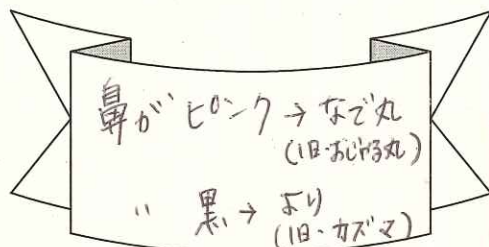 鼻がピンク→なで丸
(旧・おじゃる丸)
〃 黒→より
(旧・カズマ)